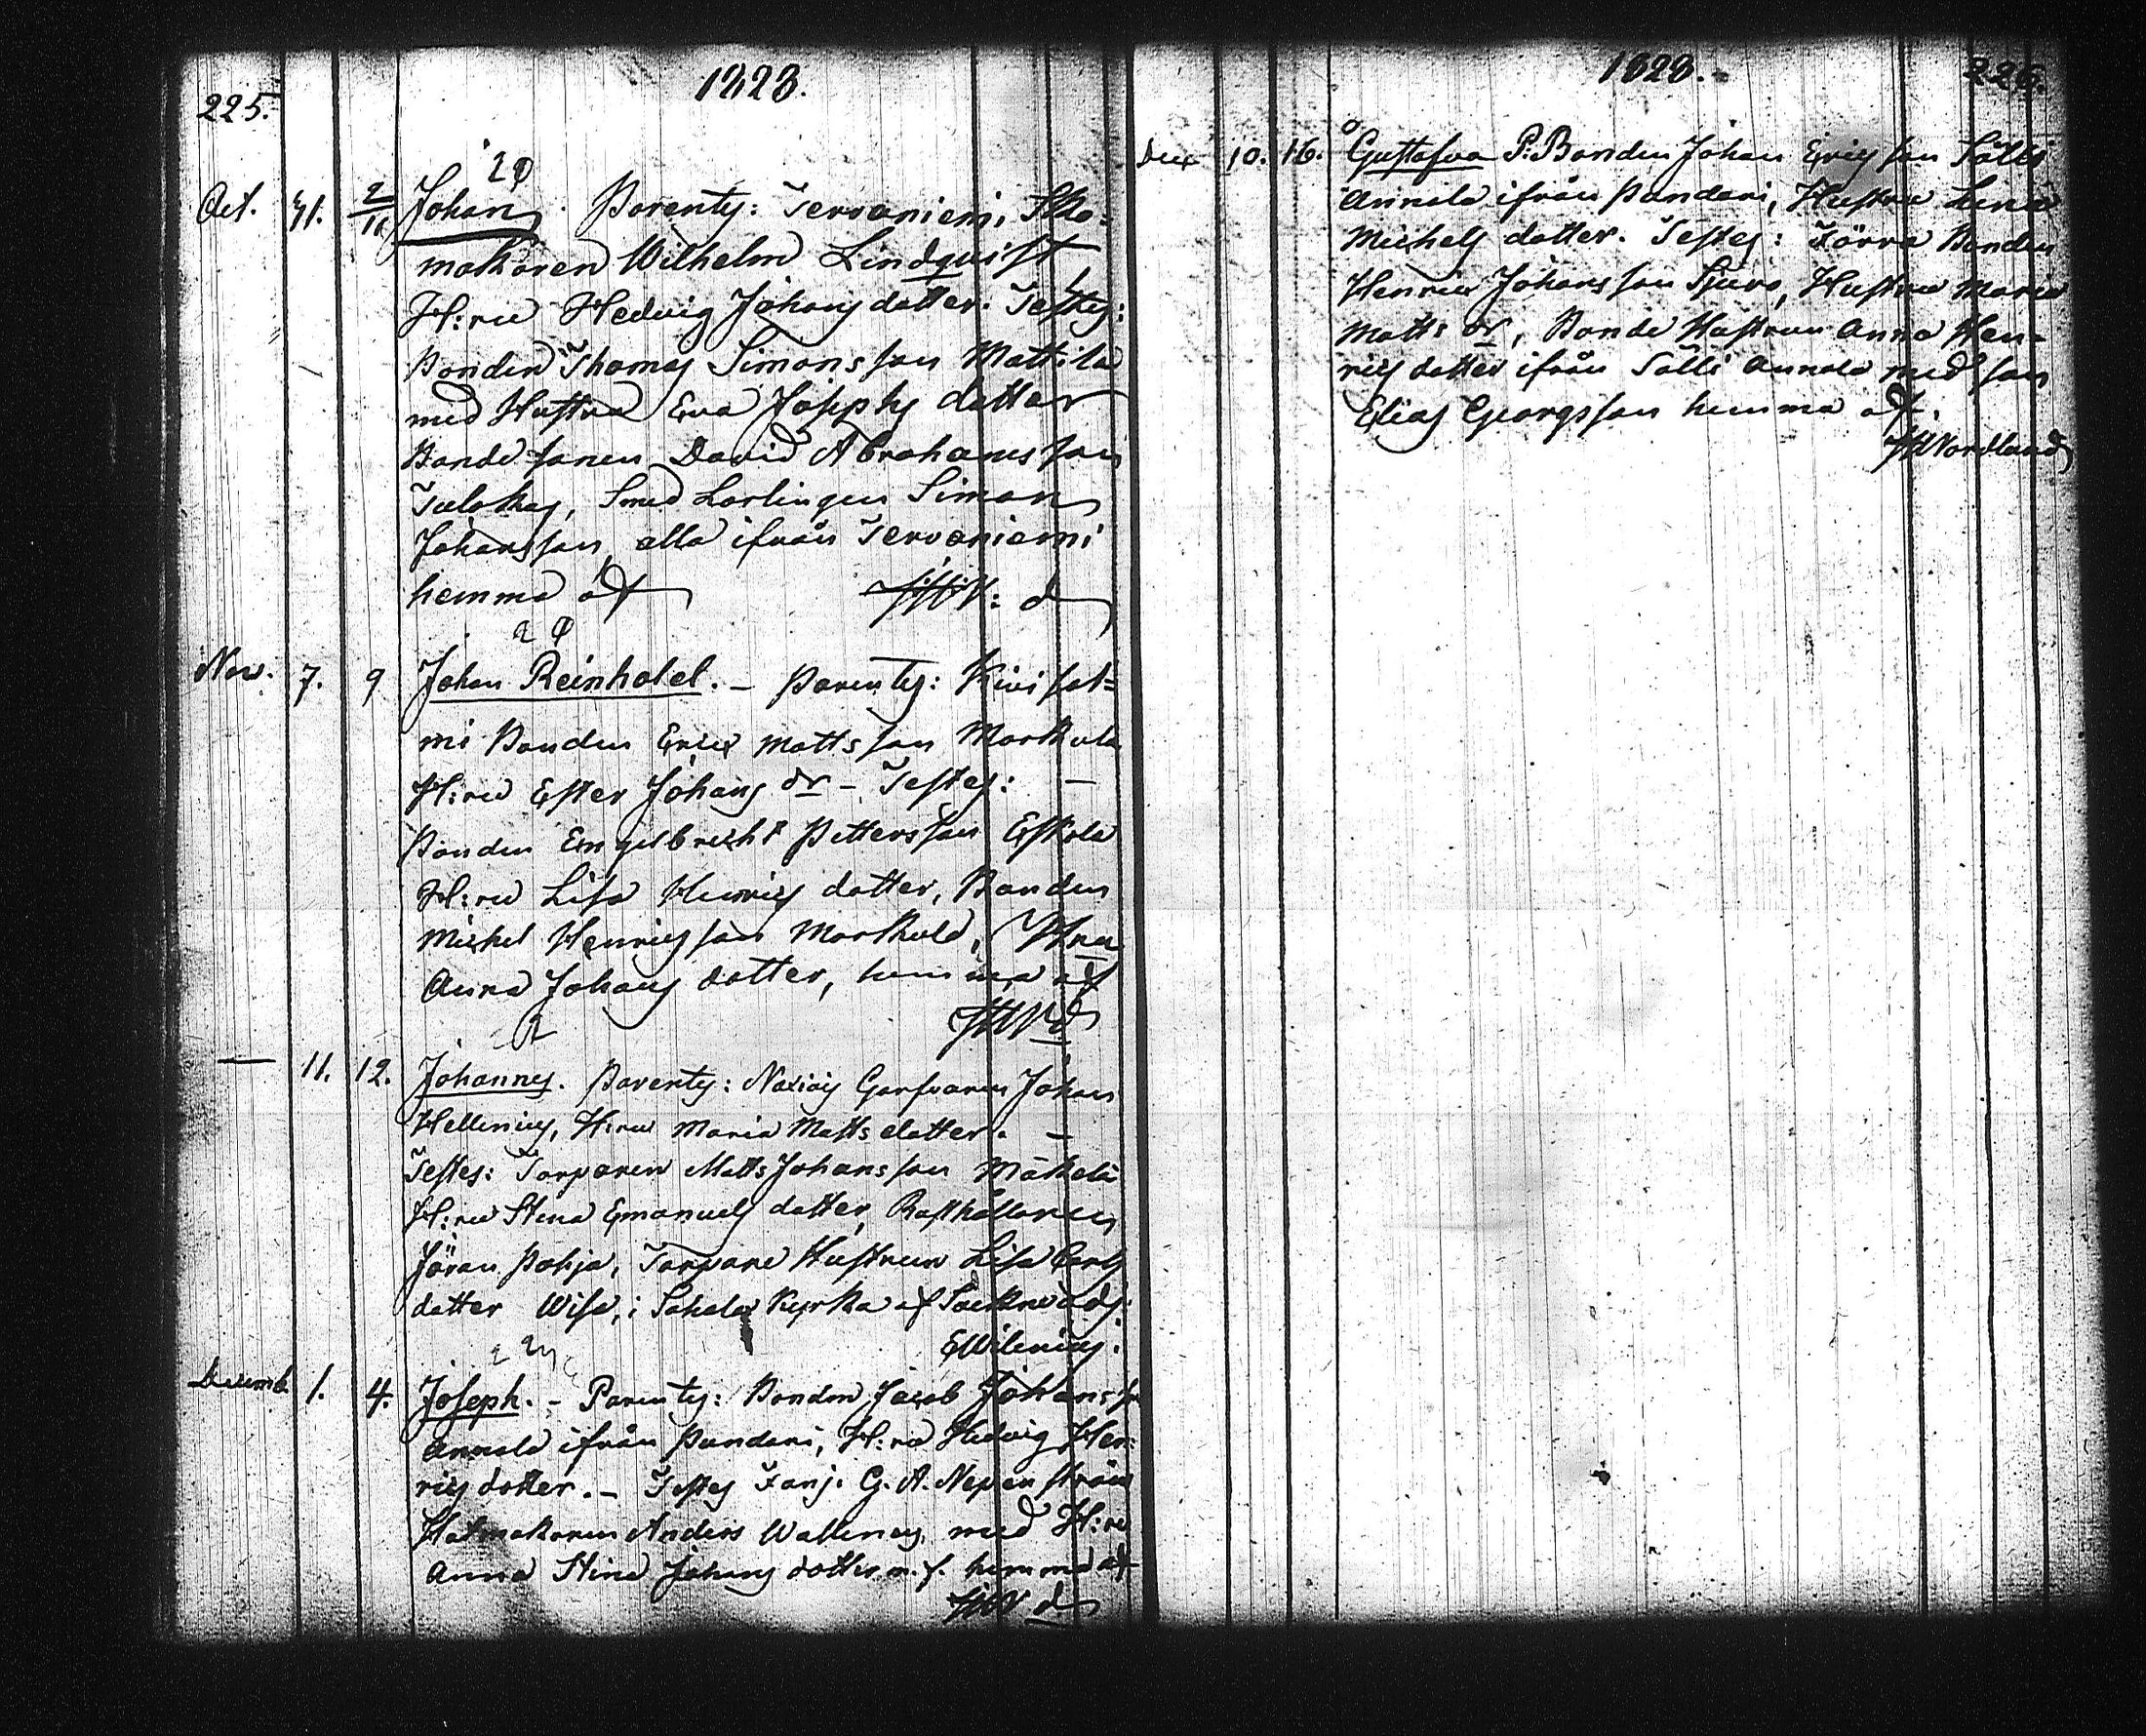 225. 1828.
Oct. 31. 2/11 Johan. Parentes: Tervaniemi Sko-
makaren Wilhelm Lindqvist
H:ru Hedvig Johans dotter. Testes:
Bonden Thomas Simonsson Mattila
med Hustru Eva Josephs dotter
Bonde sonen David Abrahamsson
Smed Lärlingen Simon
Johansson, alla ifrån Tervaniemi
hemma af
Nov. 7. 9 Johan Reinhold. – Parentes: Kivisal=
mi Bonden Eric Mattsson Markula
H:ru Ester Johans dr – Testes: –
Bonden Engelbrecht Pettersson Eskola
H:ru Lisa Henrics dotter, Bonden
Michel Henricsson Markula, Hru
Anna Johans dotter, hemma af
— 11. 12. Johannes. Parentes: Garfvaren Johan
Hellenius, H:ru Maria Matts dotter. –
Testes: Torparen Matts Johansson Mäkelä
H:ru Stina Emanuels dotter, Rusthållaren
Jöran Pohja, Torpare Hustrun Lisa Carls
dotter Wisa, i Sahalax Kyrka af
EWilenius.
Decemb. 1. 4. Joseph. – Parentes: Bonden Jacob Johansson
Annala ifrån Pundari, H:ru Hedvig Hen-
rics dotter. – Testes Fanj. G. A. Nepenström
Hatmakaren Anders Wallenius med H:ru
Anna Stina Johans dotter m. f. hemma af
1828. 226.
Dec 10. 16. Gustafva P: Bonden Johan Ericsson Sälli
Annala ifrån Pundari, Hustru Lena
Michels dotter. Testes: Förra Bonden
Henric Johansson Hustru Maria
Matts dr, Bonde Hustrun Anna Hen-
rics dotter ifrån Sälli Annala med son
Elias Georgsson hemma af.
Nordlund